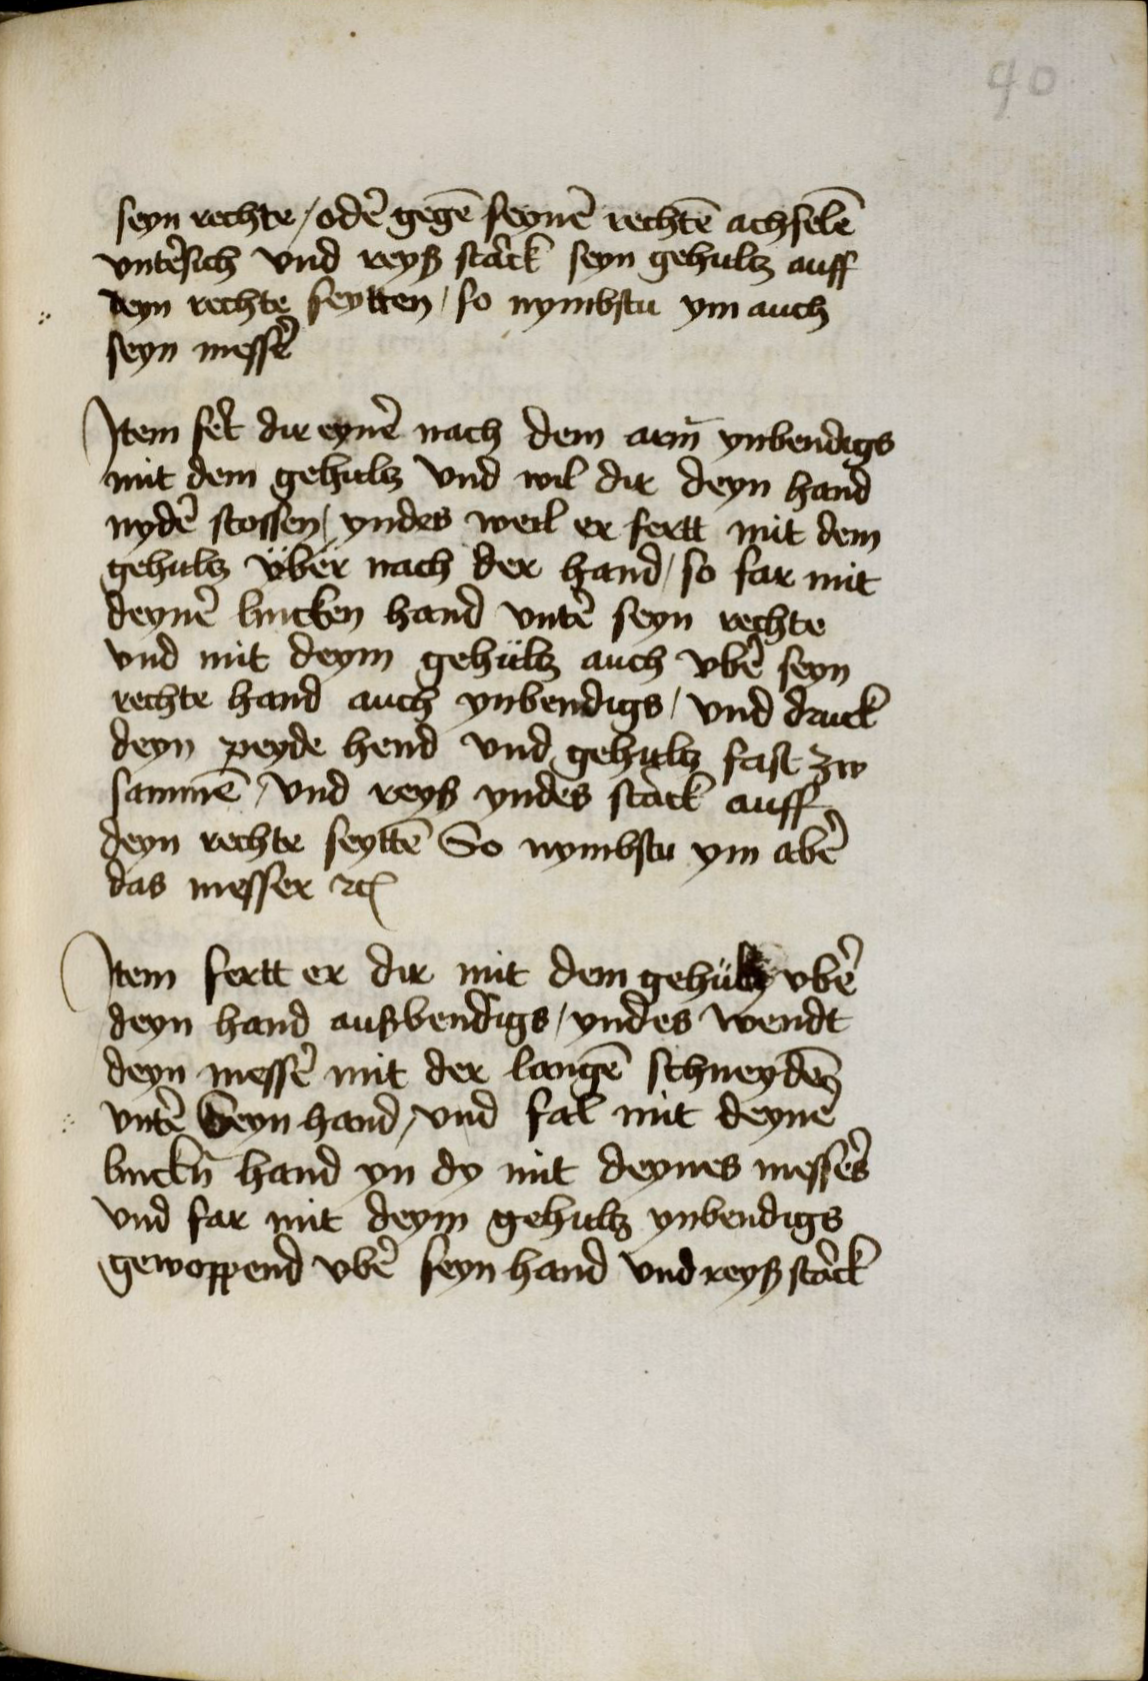 40
seyn rechte / oder̄ gegē seynē rechtē achselē
vnter̄sich vnd reyß starck seyn gehultz auff
deyn rechte seytten / so nymbstu ym auch
seyn messer̄
Jtem fer̄t dir eyner̄ nach dem arm̄ ynbendigs
mit dem gehultz vnd wil dir deyn hand
nyder̄ stossen / yndes weil er fertt mit dem
gehultz v̈ber nach der hand / so far mit
deyner̄ lincken hand vnter̄ seyn rechte
vnd mit deym gehültz auch vber̄ seyn
rechte hand auch ynbendigs / vnd druck
deyn peyde hend vnd gehultz fast zw
sammē / vnd reyß yndes starck auff
deyn rechte seyttē So nymbstu ym aber̄
das messer ⁊c
Jtem fertt er dir mit dem gehültz vber̄
deyn hand außbendigs / yndes wendt
deyn messer̄ mit der langē schneydē
vnter̄ seyn hand / vnd fal mit deyner̄
linckn̄ hand yn dy mit deynes messer̄s
vnd far mit deym gehultz ynbendigs
gewoppend vber̄ seyn hand vnd reyß starck